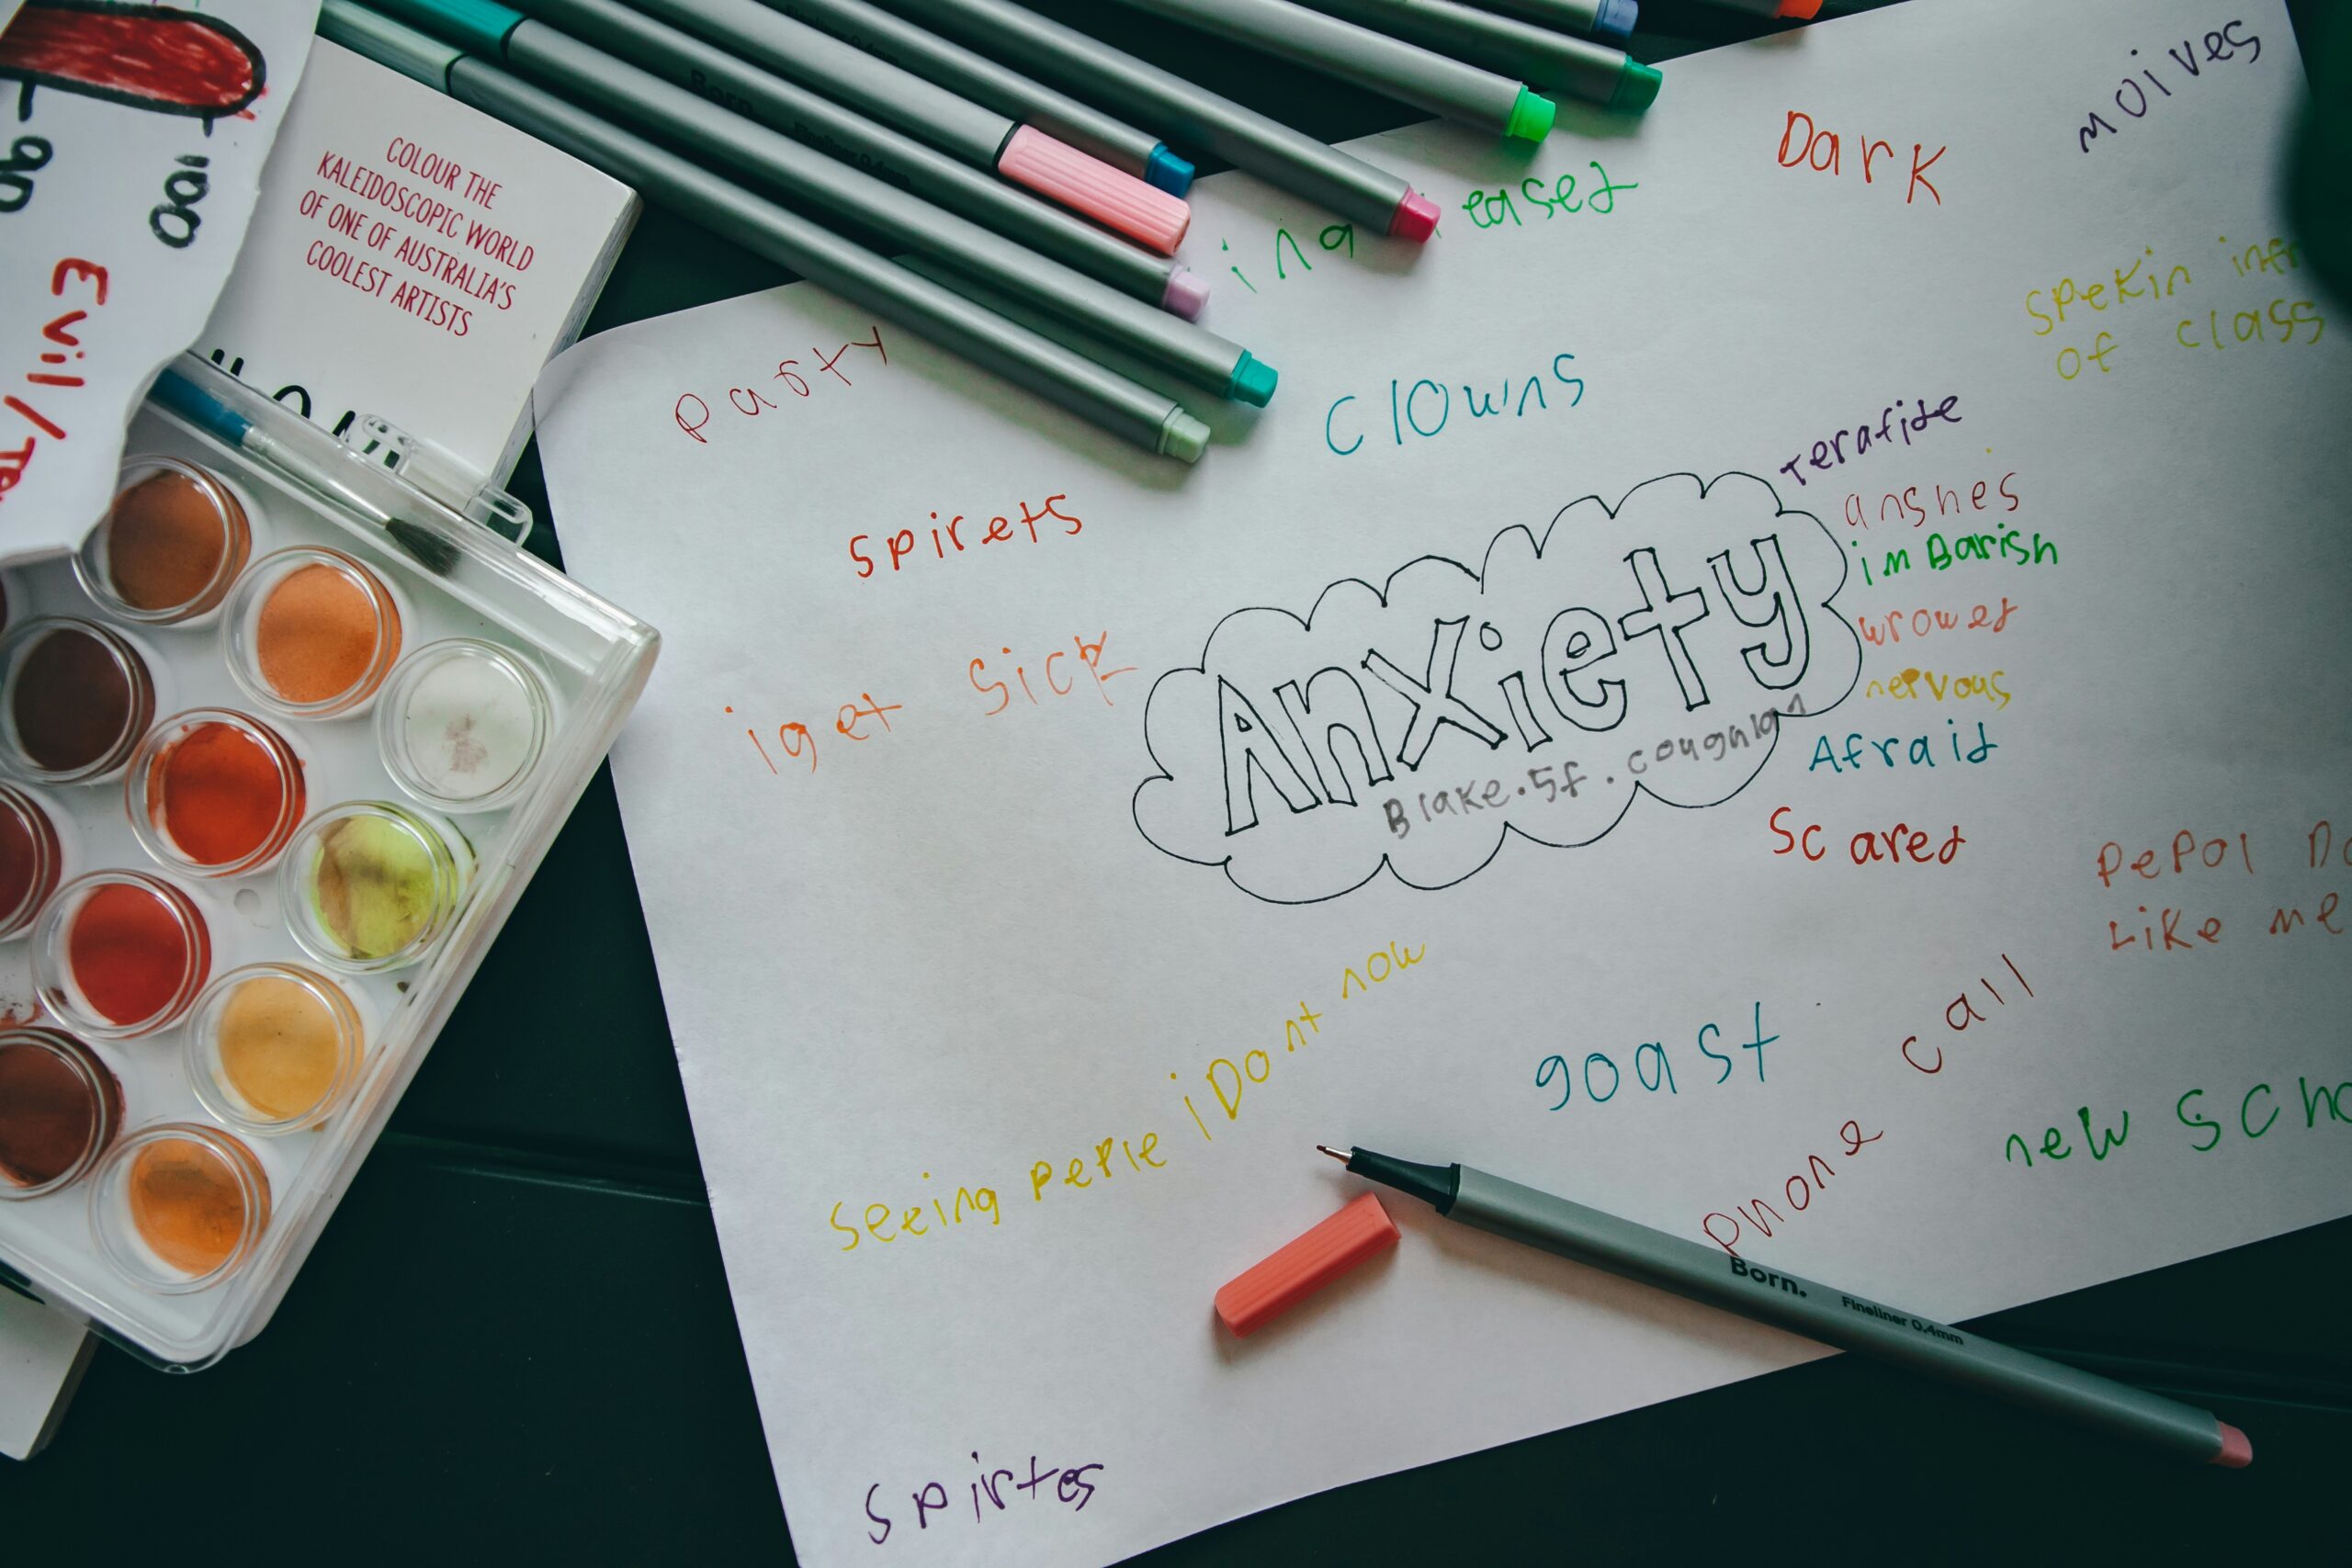 COLOUR THE
KALEIDOSCOPIC WORLD
OF ONE OF AUSTRALIA'S
COOLEST ARTISTS
90
100
Evil/
Born.
moives
Dark
spekin
of class
party
Clowns
terafide
spirets
anshes
imBarish
wrowed
i get sick
Anxiety
nervous
Blake.5f.coughlan
Afraid
Scared
pepol
Like me
seeing peple i Dont now
goast
phone call
new
Born. Fineliner 0.4mm
spirtes